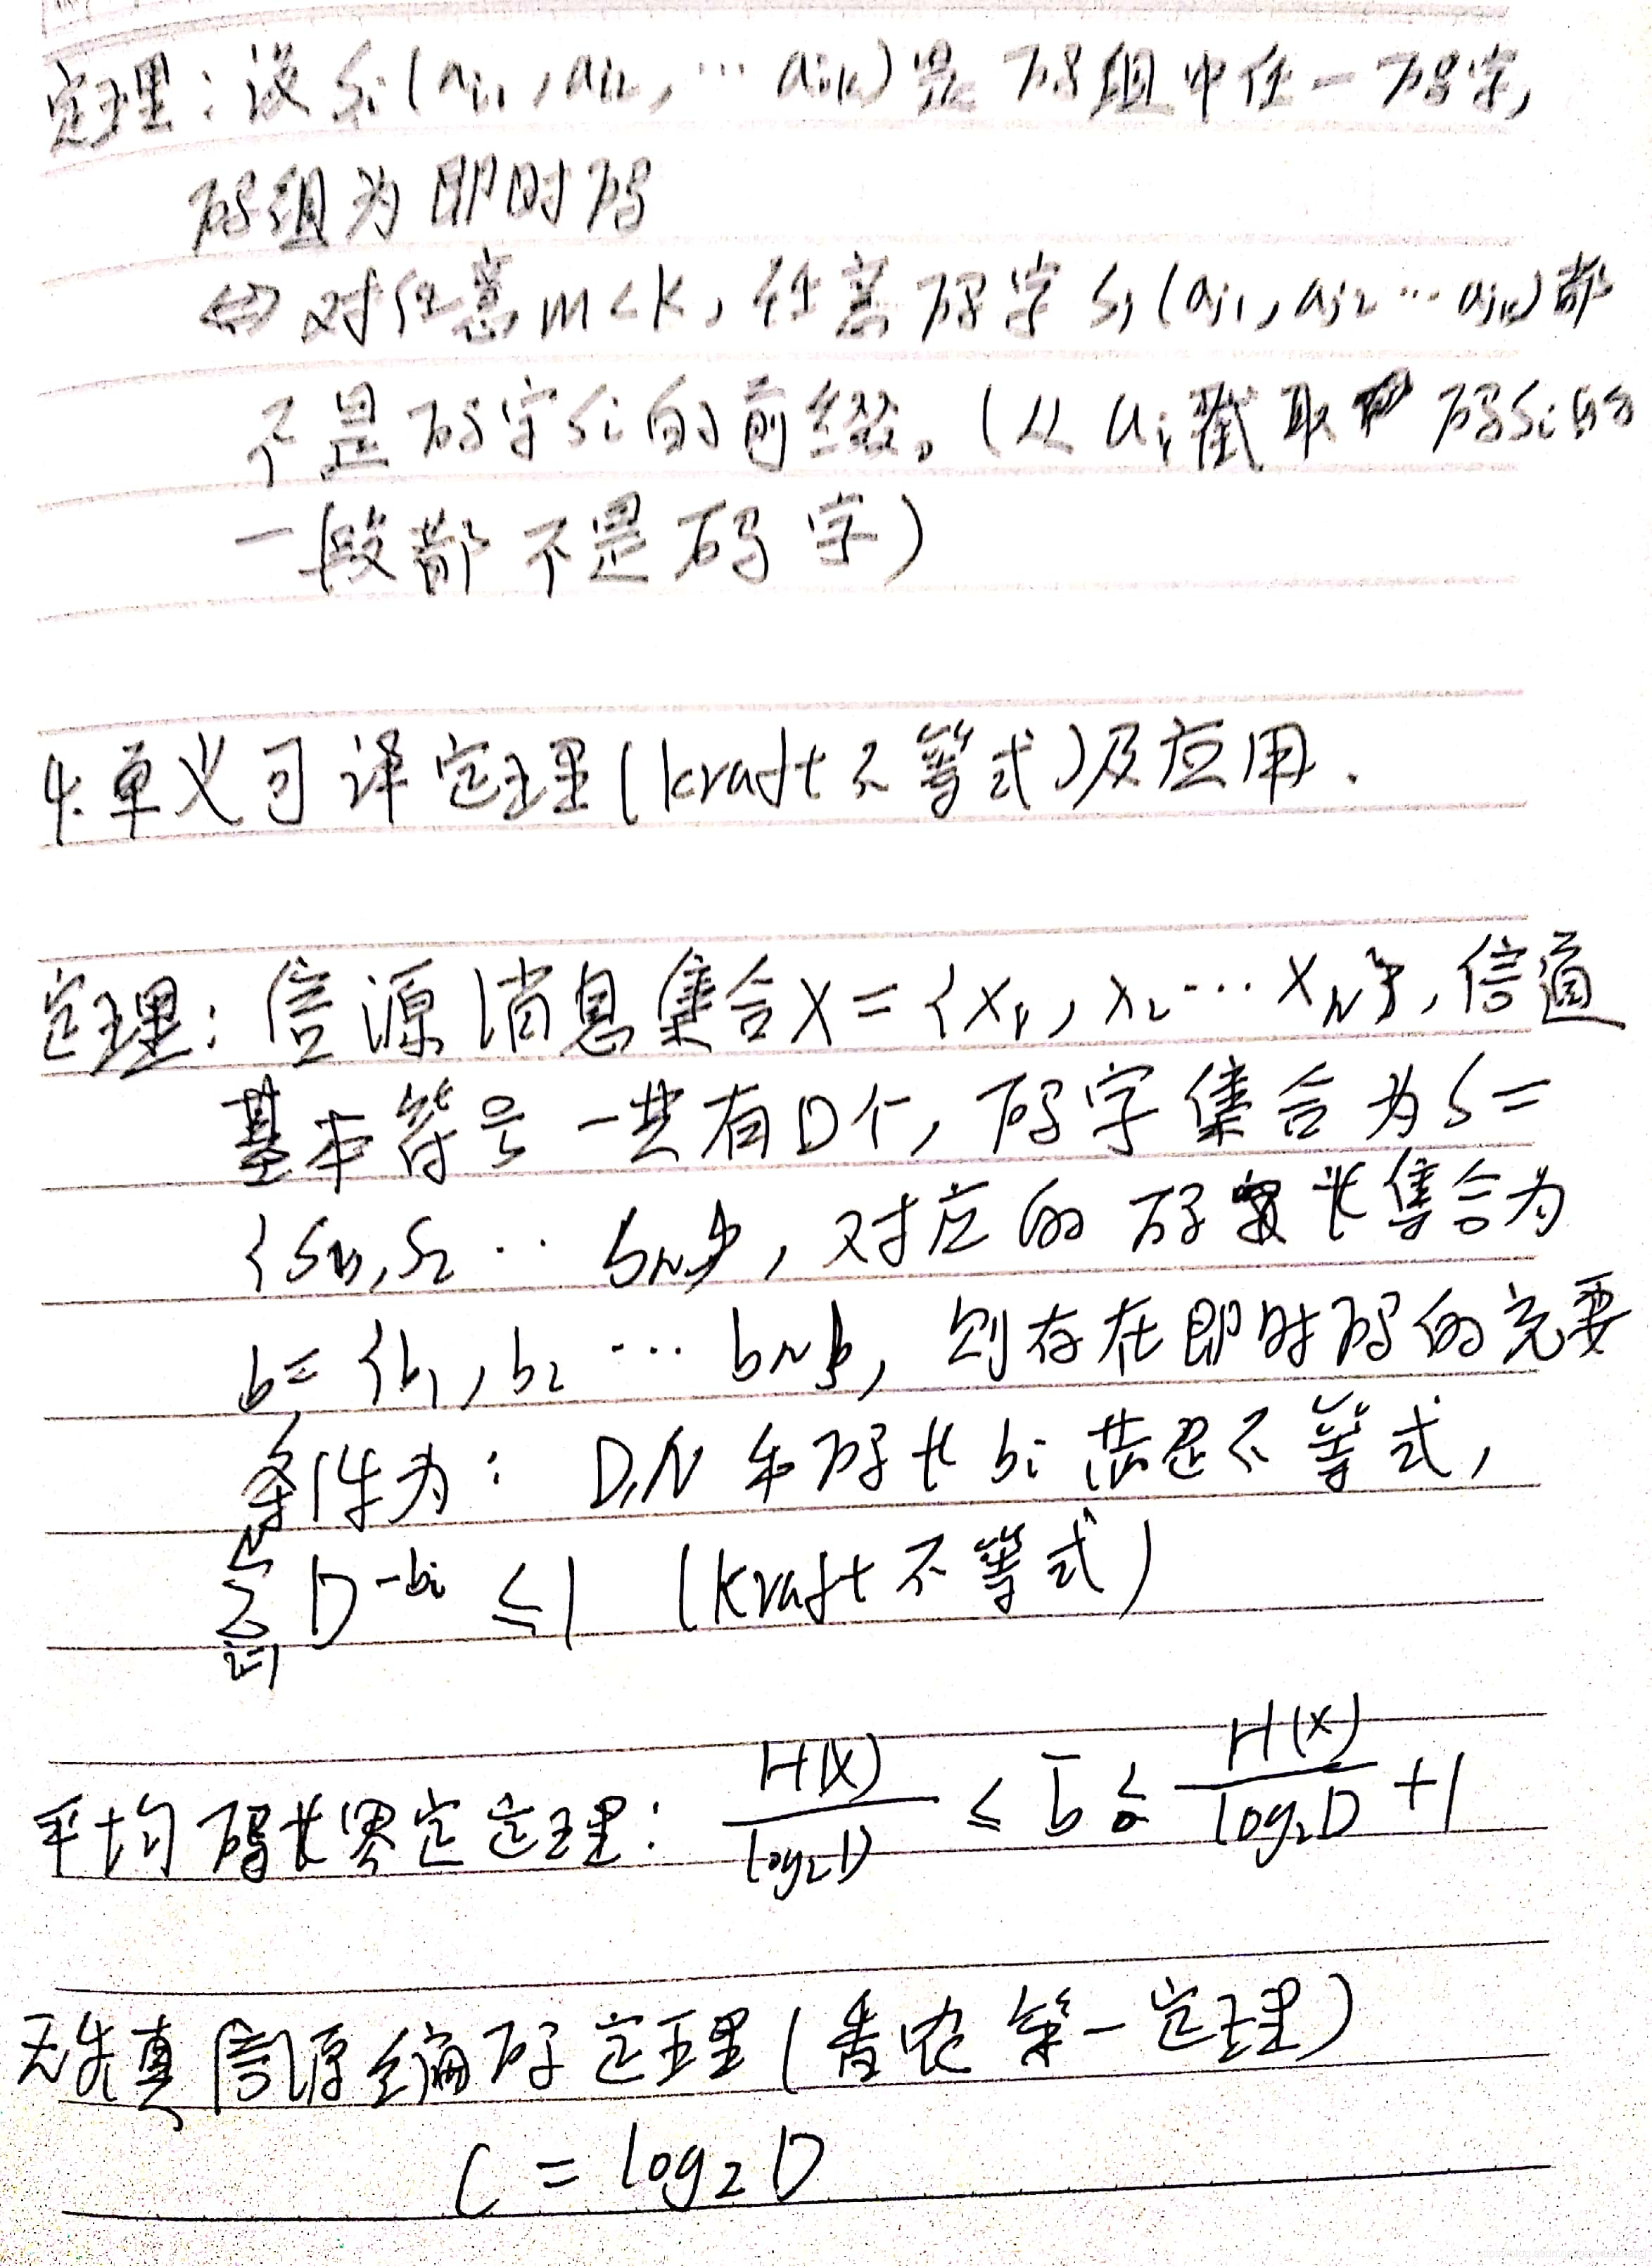 定理：设Si(ai1,ai2,…aik)是码组中任一码字,
码组为即时码
⇔对任意m<k,任意码字Sj(aj1,aj2…ajk)都
不是码字Si的前缀。(从ai截取 码Si的
一段都不是码字)
4.单义可译定理(kraft不等式)及应用.
定理：信源消息集合X={x1,x2…xN},信道
基本符号一共有D个,码字集合为S=
{S1,S2…SN},对应的码长集合为
b={b1,b2…bN},则存在即时码的充要
条件为：D,N和码长bi满足不等式,
∑_{i=1}^{N} D^{-bi} ≤1 (kraft不等式)
平均码长界定定理：H(X)/log₂D ≤ b̄ ≤ H(X)/log₂D +1
无失真信源编码定理(香农第一定理)
C = log₂D